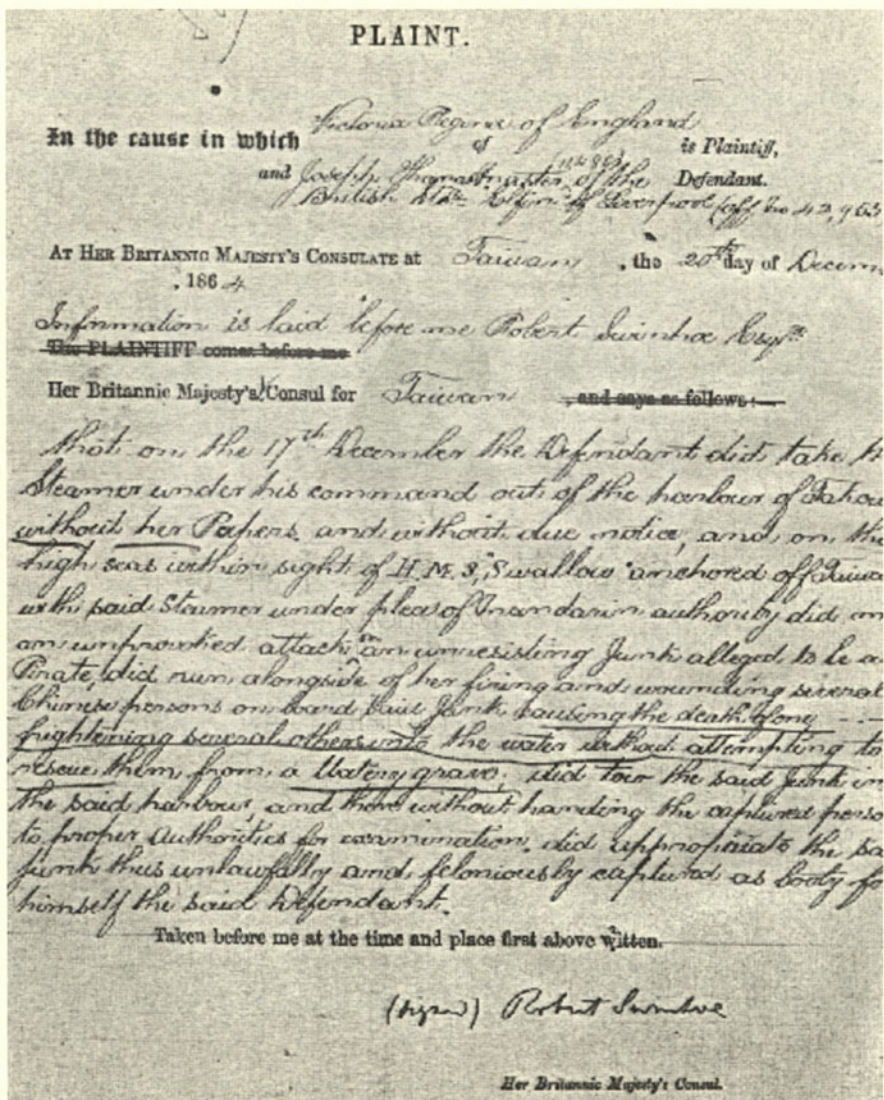 PLAINT.
Victoria Regina of England
In the cause in which of is Plaintiff,
and Joseph Thomas master of the Defendant.
British Str. Elfin of Liverpool (off. No 42,963
AT HER BRITANNIC MAJESTY'S CONSULATE at Taiwan , the 20th day of Decem
, 1864
Information is laid before me Robert Swinhoe Esqre
The PLAINTIFF comes before me
Her Britannic Majesty's Consul for Taiwan , and says as follows:—
that on the 17th December the Defendant did take th
Steamer under his command out of the harbour of Takow
without her Papers and without due notice, and on the
high seas within sight of H.M.S. "Swallow" anchored off Taiwa
with said Steamer under pleas of Mandarin authority did m
an unprovoked attack on an unresisting Junk alleged to be a
Pirate, did run alongside of her firing and wounding several
Chinese persons on board said Junk causing the death of one
frightening several others into the water without attempting to
rescue them from a Watery grave, did tow the said Junk in
the said harbour, and there without handing the captured perso
to proper authorities for examination, did appropriate the sa
junk thus unlawfully and feloniously captured as booty fo
himself the said Defendant.
Taken before me at the time and place first above witten.
(signed) Robert Swinhoe
Her Britannic Majesty's Consul.